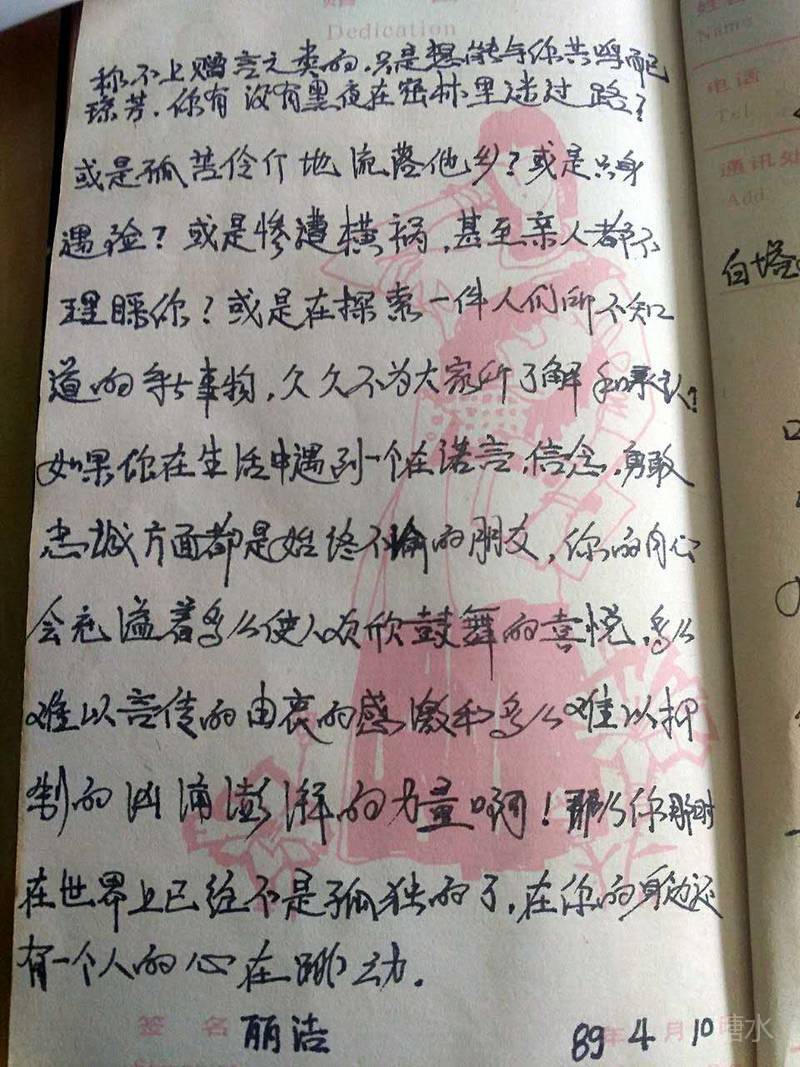 Dedication
称不上赠言之类的,只是想能与你共鸣而已
琼芳,你有没有黑夜在密林里迷过路?
或是孤苦伶仃地流落他乡?或是只身
遇险?或是惨遭横祸,甚至亲人都不
理睬你?或是在探索一件人们所不知
道的事物,久久不为大家所了解和承认?
如果你在生活中遇到一个在诺言,信念,勇敢
忠诚方面都是始终不渝的朋友,你的内心
会充溢着多么使人欢欣鼓舞的喜悦,多么
难以言传的由衷的感激和多么难以押
制的汹涌澎湃的力量啊!那么你那时
在世界上已经不是孤独的了,在你的身边还
有一个人的心在跳动.
签名 丽洁 89年4月10
Name
电话
Tel
通讯处
Add
白塔
塘水